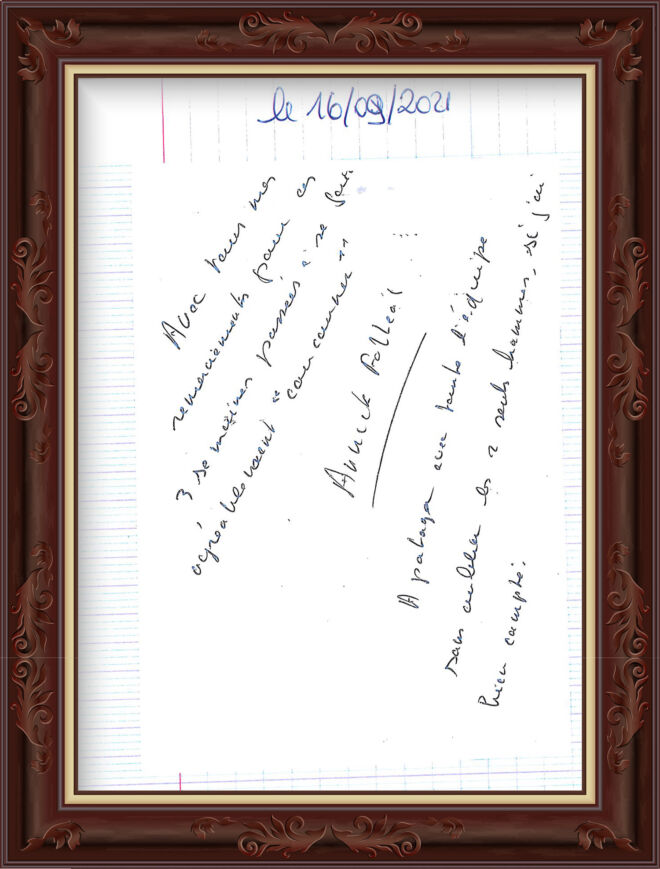 le 16/09/2021
Avec tous mes
remerciements pour ces
3 semaines passées à se
agréablement
Annick
A patager avec toute l'équipe
sans oublier les 2 seuls hommes, si j'ai
bien compté.